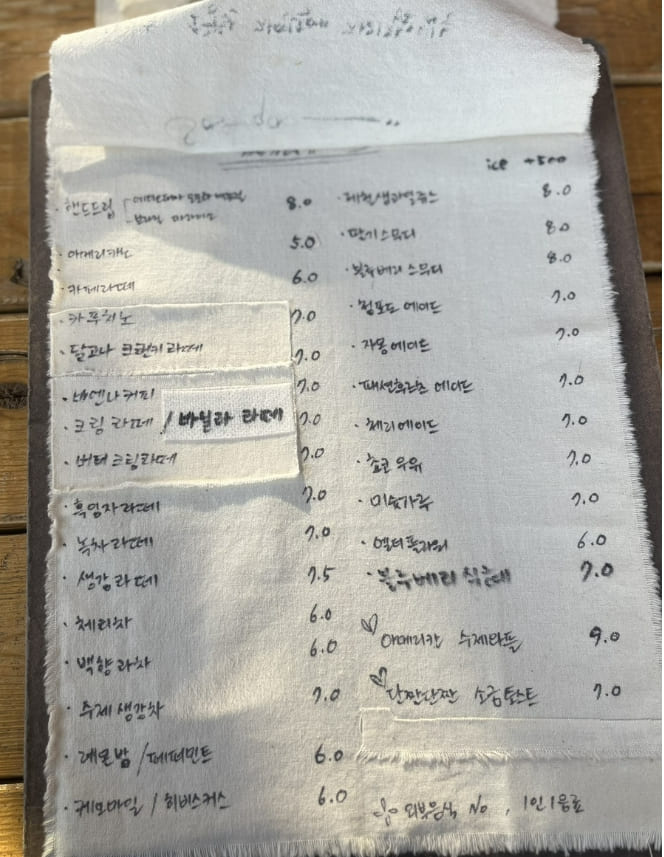 ice +500
· 핸드드립
8.0
· 아메리카노 5.0
· 카페라떼 6.0
· 카푸치노 7.0
· 달고나 크런키 라떼 7.0
· 비엔나 커피 7.0
· 크림 라떼 / 바닐라 라떼 7.0
· 버터크림라떼 7.0
· 흑임자라떼 7.0
· 녹차라떼 7.0
· 생강라떼 7.5
· 체리차 6.0
· 백향과차 6.0
· 수제생강차 7.0
· 레몬밤 / 페퍼민트 6.0
· 케모마일 / 히비스커스 6.0
· 제철생과일쥬스 8.0
· 딸기스무디 8.0
· 블루베리 스무디 8.0
· 청포도 에이드 7.0
· 자몽에이드 7.0
· 패션후르츠 에이드 7.0
· 체리에이드 7.0
· 초코우유 7.0
· 미숫가루 7.0
· 엘더플라워 6.0
· 블루베리 식혜 7.0
♡ 아메리칸 수제와플 9.0
♡ 단짠단짠 소금토스트 7.0
외부음식 No, 1인 1음료